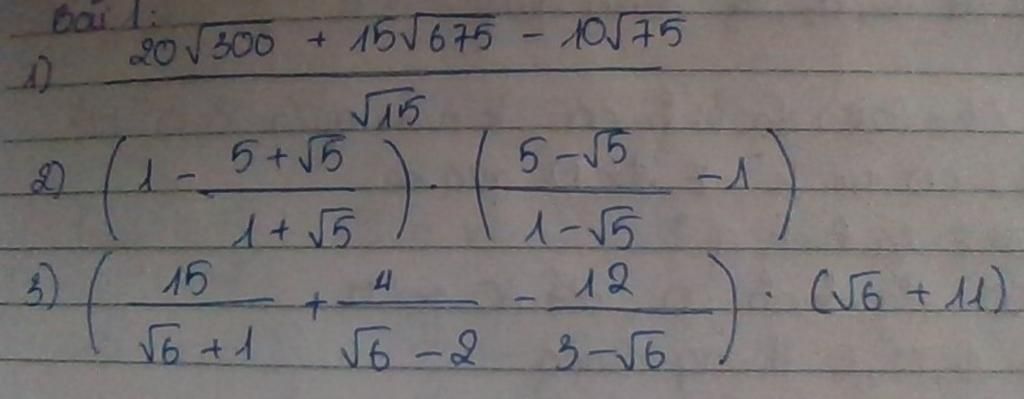 Bài 1:
1) (20√300 + 15√675 - 10√75) / √15
2) (1 - (5 + √5) / (1 + √5)) . ((5 - √5) / (1 - √5) - 1)
3) (15 / (√6 + 1) + 4 / (√6 - 2) - 12 / (3 - √6)) . (√6 + 11)